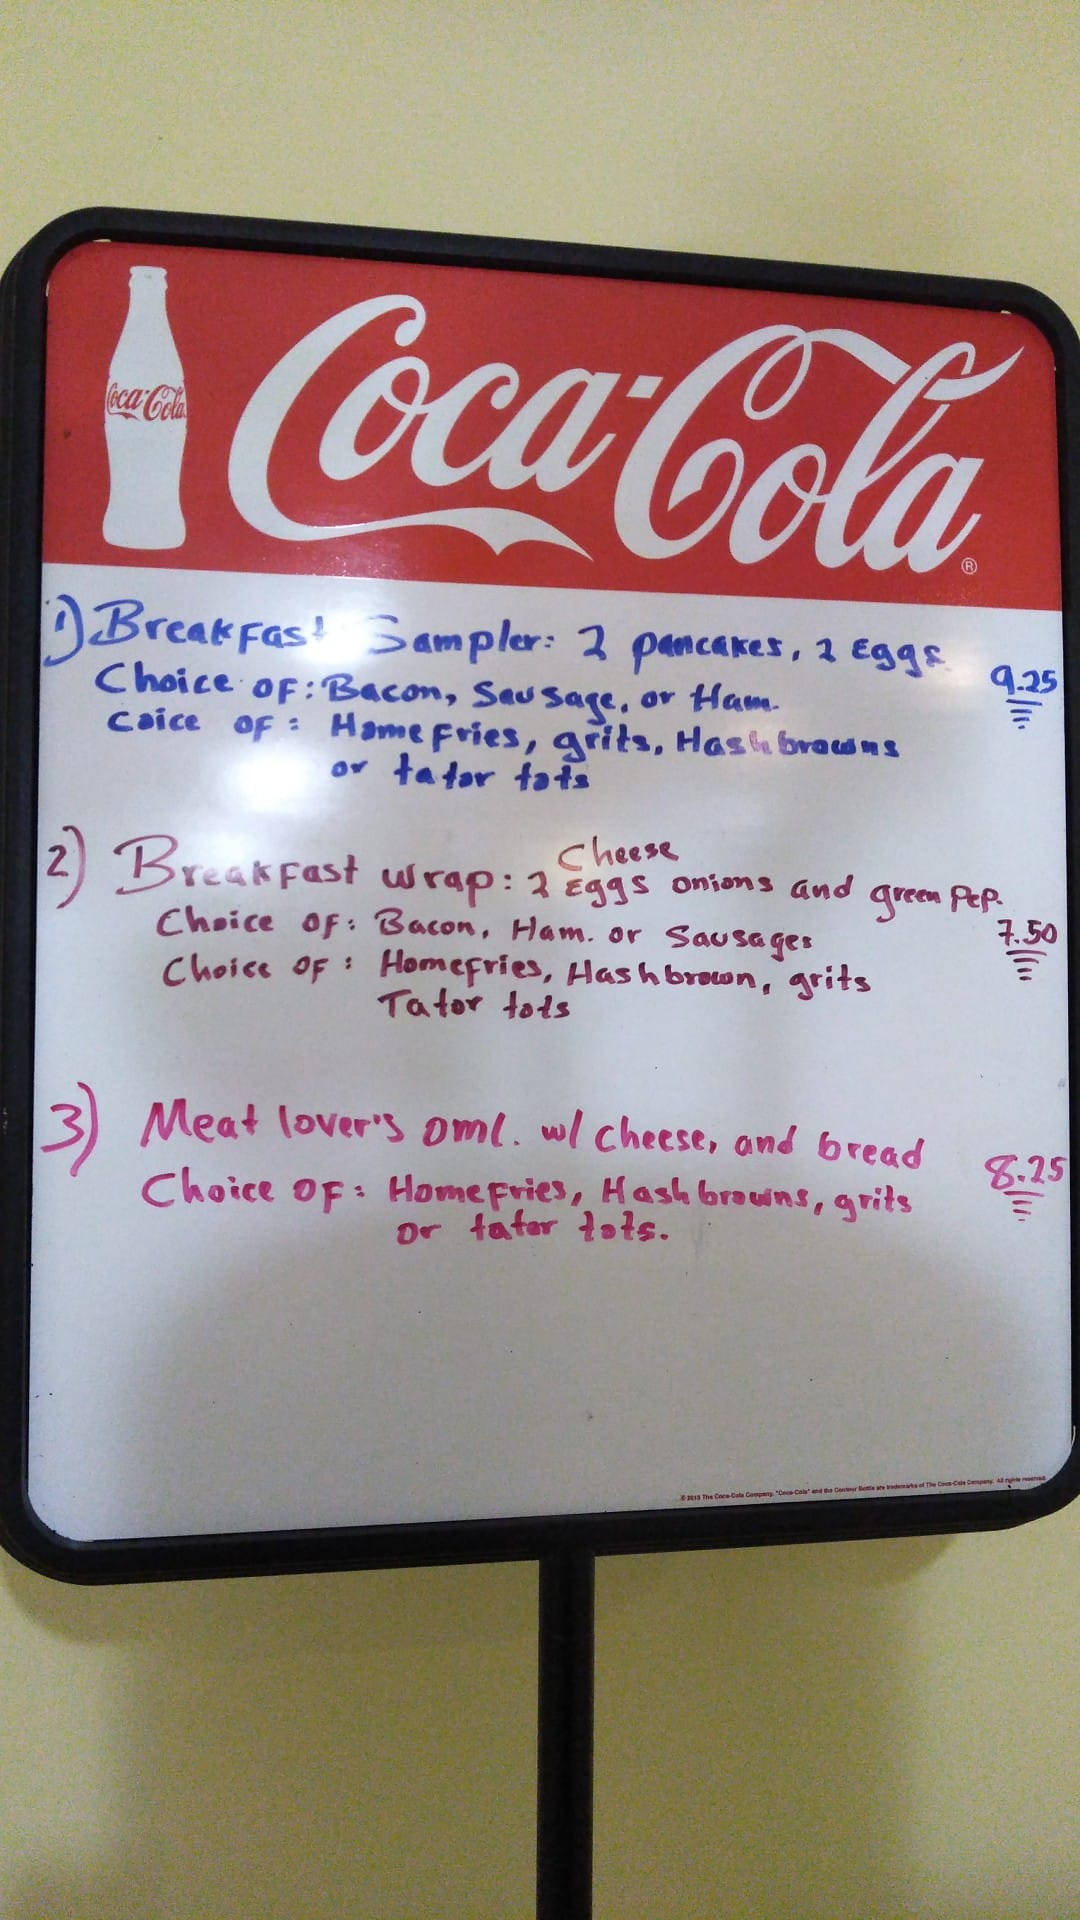 Coca-Cola
Coca-Cola®
1) Breakfast Sampler: 2 pancakes, 2 Eggs
9.25
Choice of: Bacon, Sausage, or Ham.
Caice of: Homefries, grits, Hashbrowns
or tator tots
2) Breakfast wrap: 2 Eggs onions and green Pep.
Cheese
7.50
Choice of: Bacon, Ham. or Sausages
Choice of: Homefries, Hashbrown, grits
Tator tots
3) Meat lover's oml. w/ cheese, and bread
8.25
Choice of: Homefries, Hashbrowns, grits
or tator tots.
© 2013 The Coca-Cola Company. "Coca-Cola" and the Contour Bottle are trademarks of The Coca-Cola Company. All rights reserved.